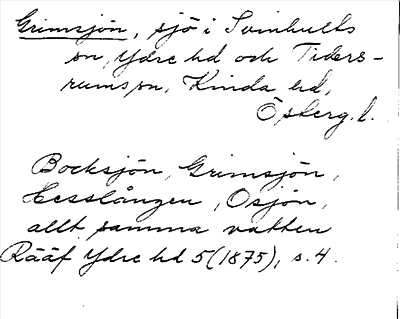 Grimsjön, sjö i Svinhults
sn, Ydre hd och Tiders-
rums sn, Kinda hd,
Österg. l.
Bocksjön, Grimsjön,
Hesslången,Ösjön,
allt samma vatten
Rääf Ydre hd 5 (1875), s. 4.